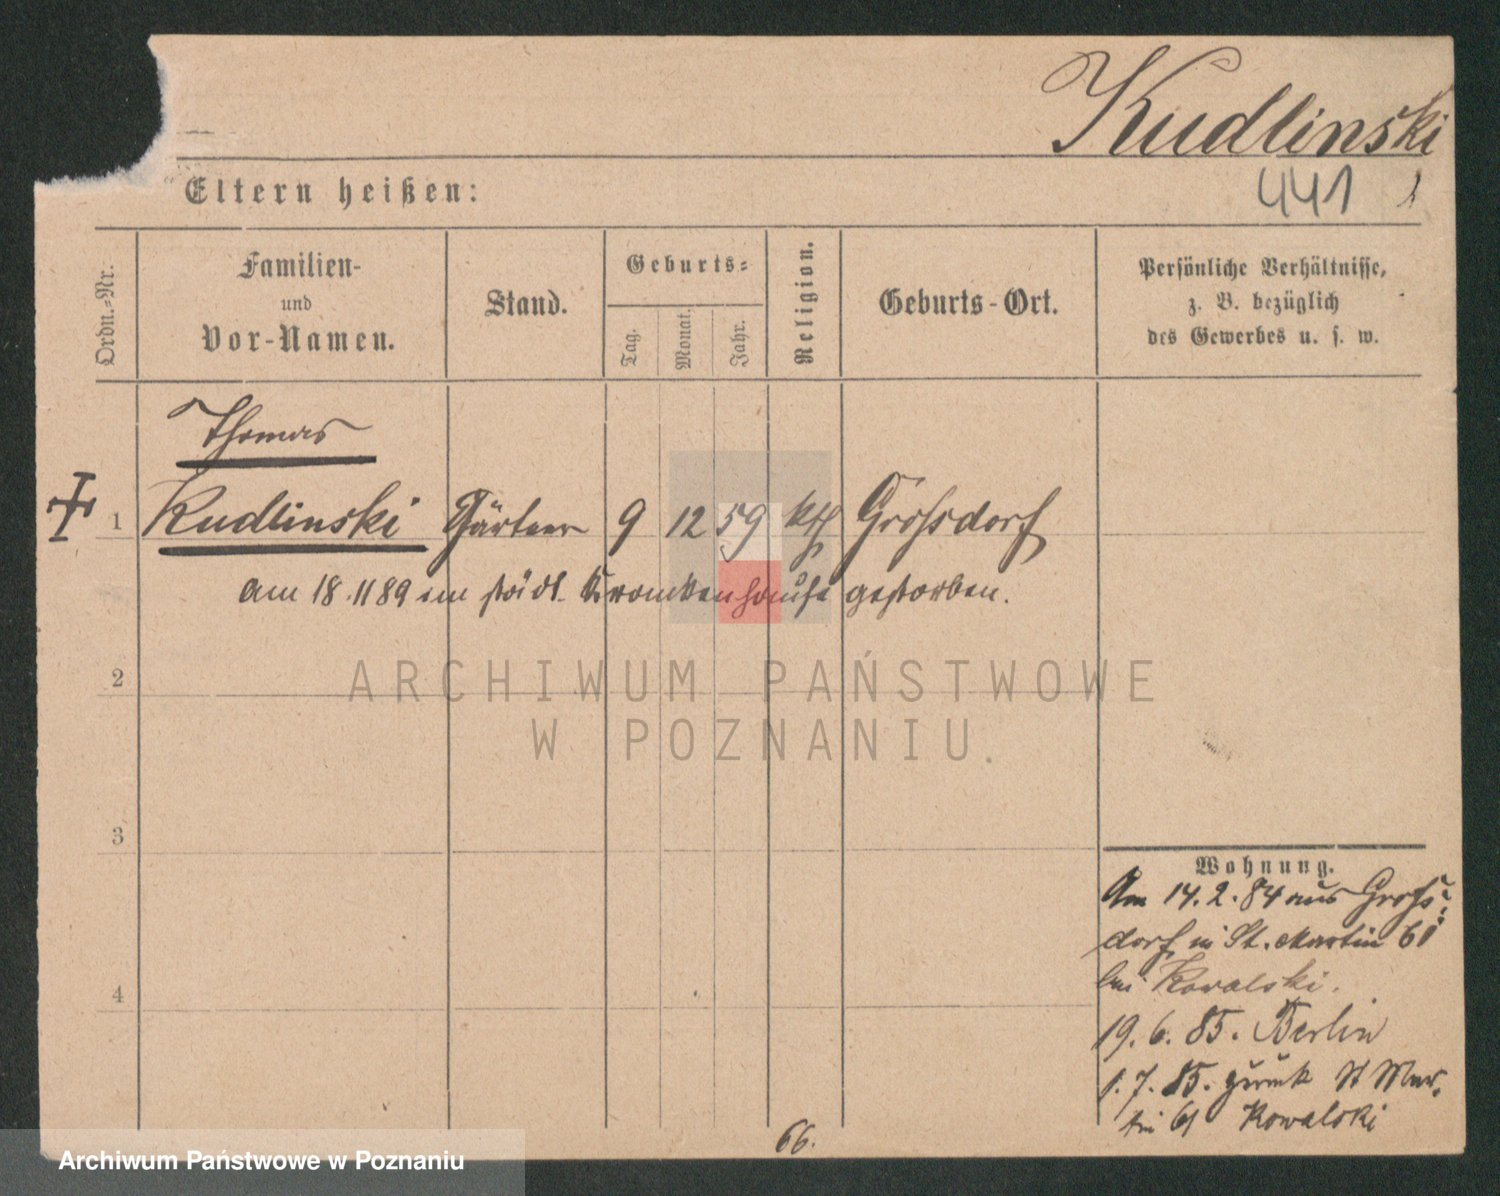 Kudlinski
441 1
Eltern heißen:
Ordn.-Nr.
Familien-
und
Vor-Namen.
Stand.
Geburts-
Tag.
Monat.
Jahr.
Religion.
Geburts-Ort.
Persönliche Verhältnisse,
z. B. bezüglich
des Gewerbes u. s. w.
Thomas
1 Kudlinski Gärtner 9 12 59 kth Grossdorf
am 18.11 89 im städt. Krankenhause gestorben.
2
ARCHIWUM PAŃSTWOWE
W POZNANIU.
3
4
Wohnung.
Am 14.2.84 aus Gross-
dorf in St. Martin 61
bei Kowalski.
19.6.85. Berlin
1.7.85. zurück St Mar-
tin 61 Kowalski
66.
Archiwum Państwowe w Poznaniu